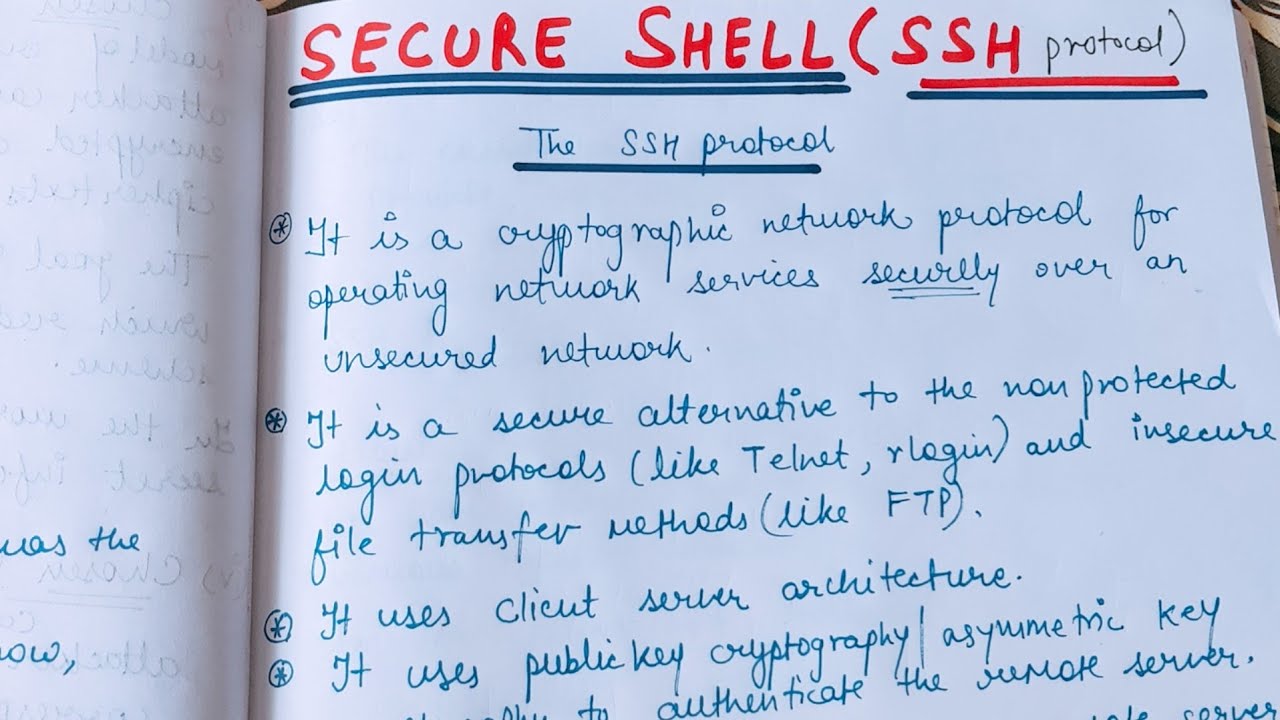 SECURE SHELL (SSH protocol)
The SSH protocol
It is a cryptographic network protocol for
operating network services securely over an
unsecured network.
It is a secure alternative to the non protected
login protocols (like Telnet, rlogin) and insecure
file transfer methods (like FTP).
It uses client server architecture.
It uses public key cryptography/asymmetric key
to authenticate the remote server.
server
was the
now,